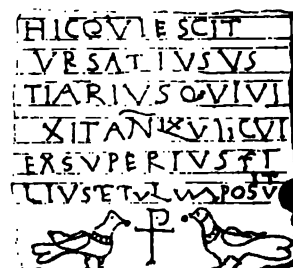 HICQVIESCIT
VRSATIVSVS
TIARIVSQVIVI
XITANIXVLICVI
ERSVPERIVSFI
LIVSETVLVMPOSV
IT